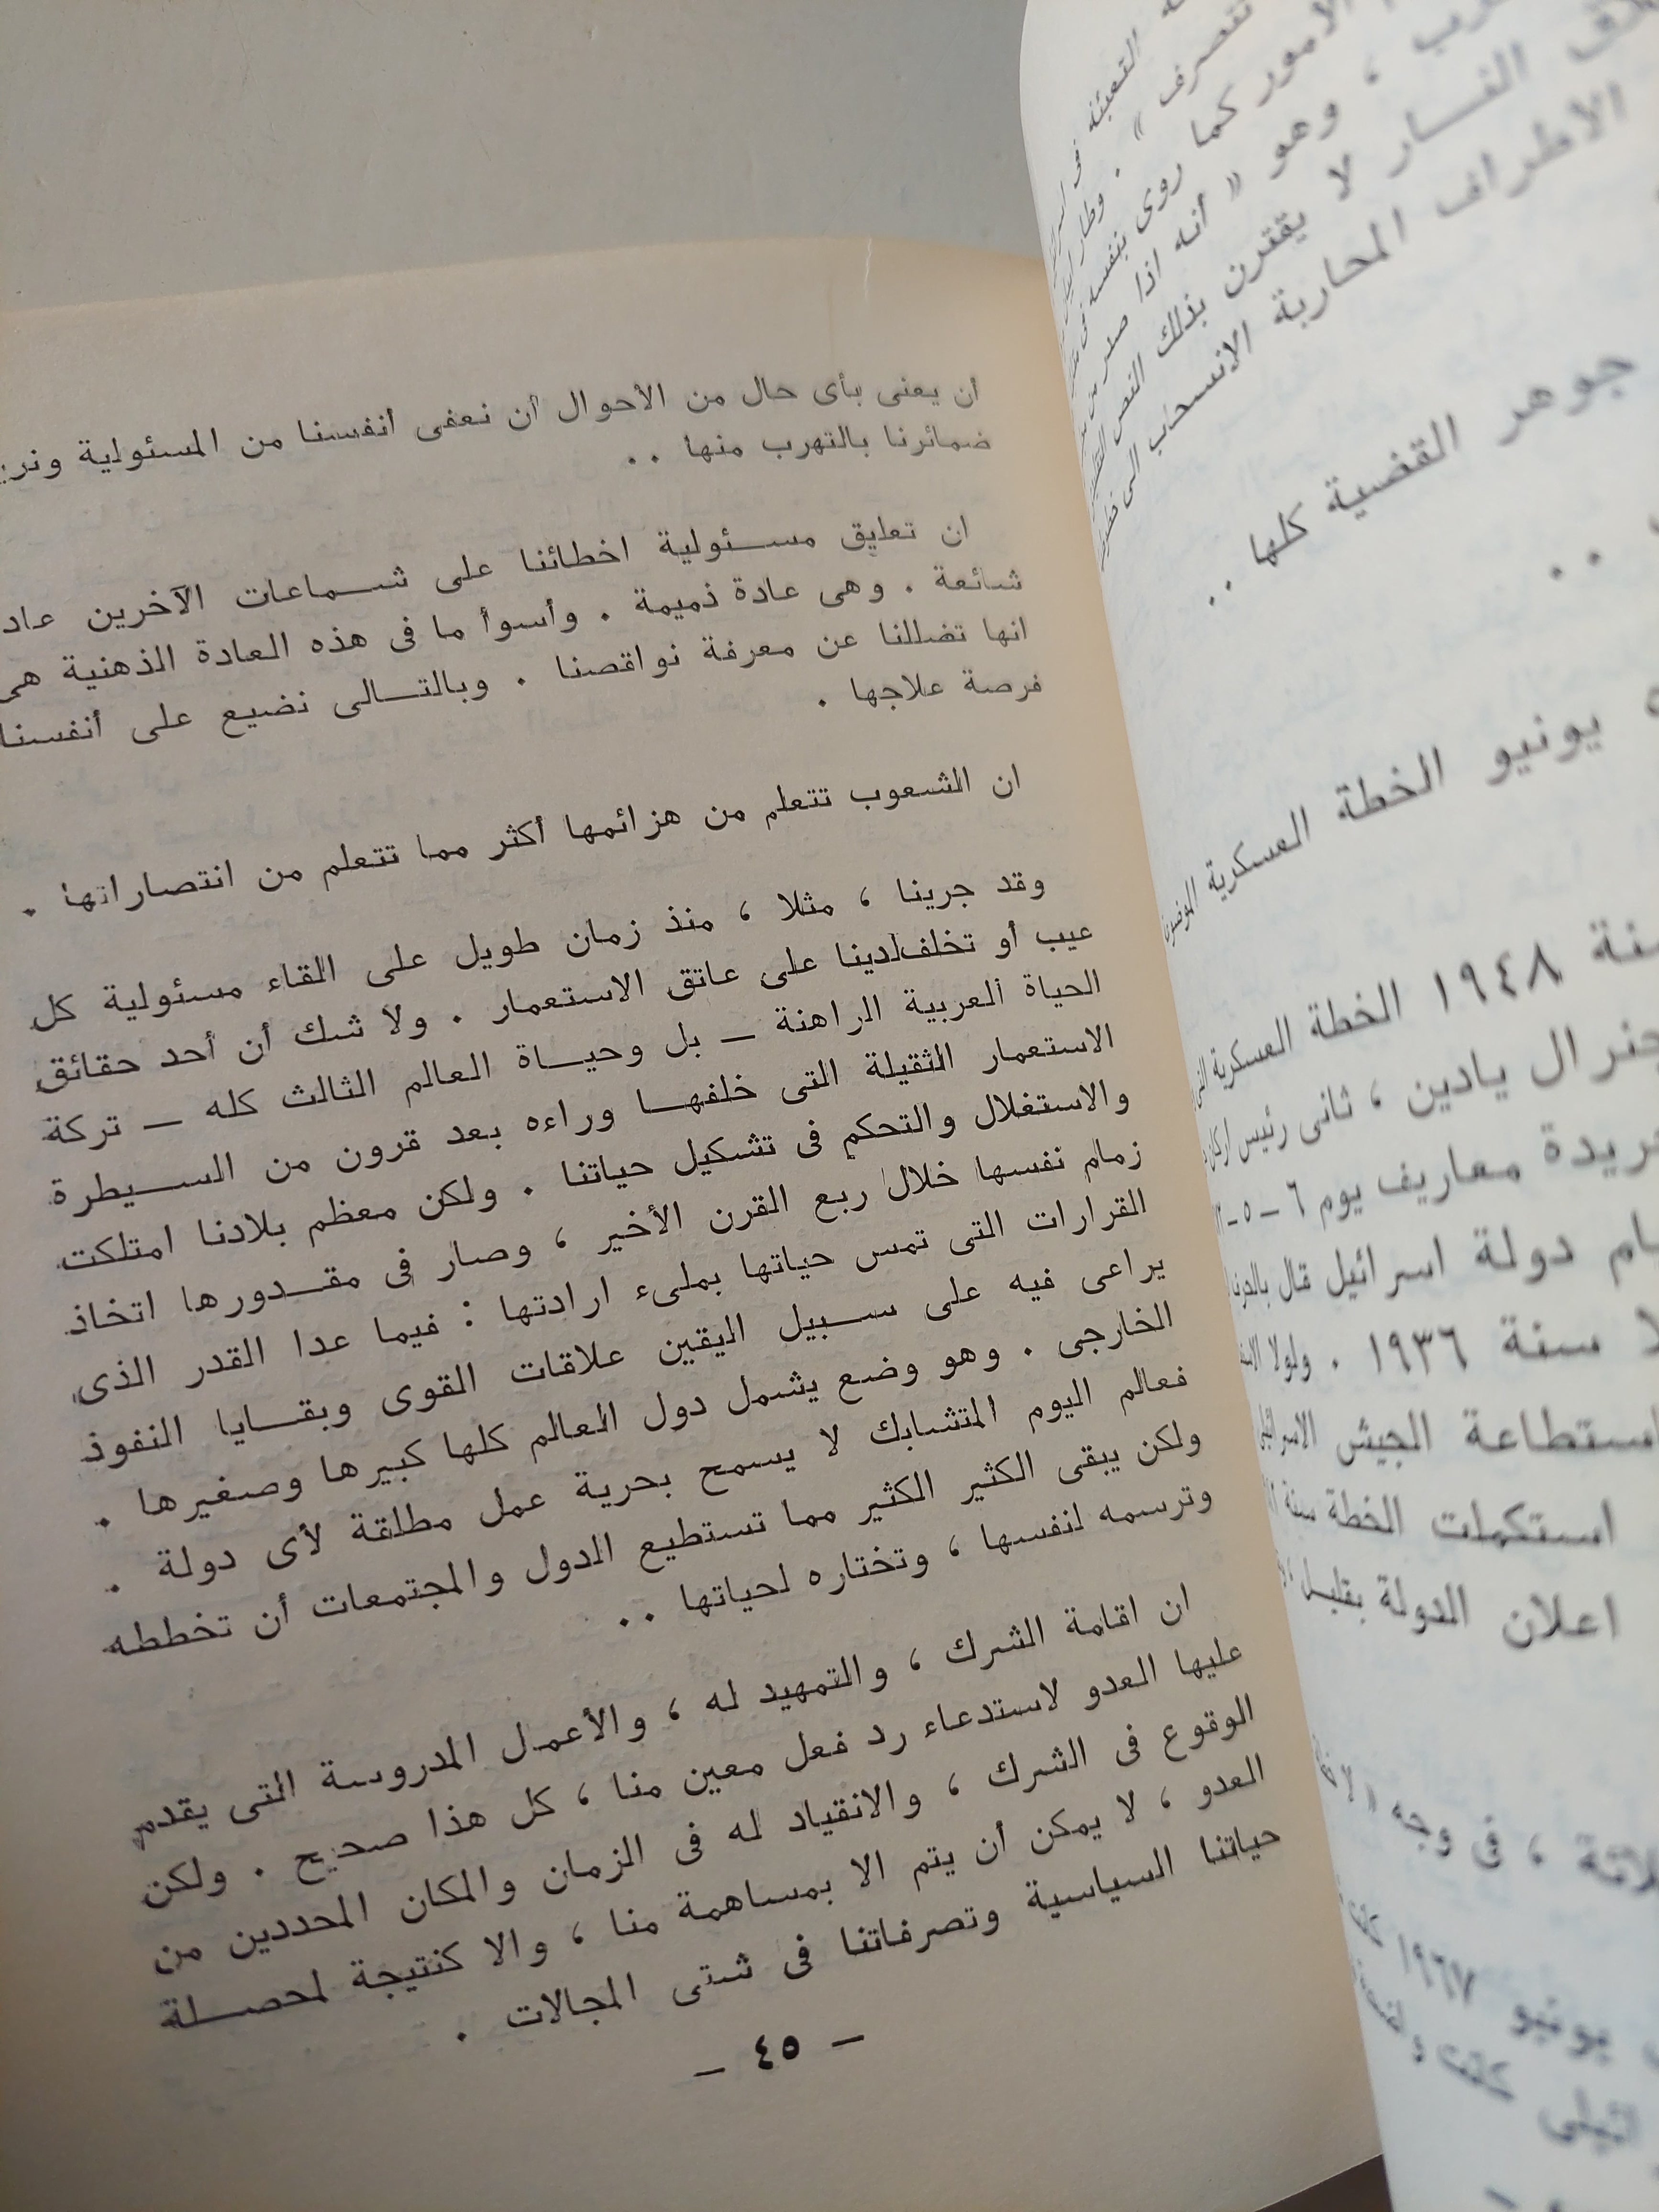 أن يعنى بأى حال من الأحوال أن نعفى أنفسنا من المسئولية
ضمائرنا بالتهرب منها ..
ان تعليق مسئولية اخطائنا على شماعات الآخرين
شائعة . وهى عادة ذميمة . وأسوأ ما فى هذه العادة الذهنية هى
انها تضللنا عن معرفة نواقصنا . وبالتالى نضيع على أنفسنا
فرصة علاجها .
ان الشعوب تتعلم من هزائمها أكثر مما تتعلم من انتصاراتها .
وقد جرينا ، مثلا ، منذ زمان طويل على القاء مسئولية كل
عيب أو تخلف لدينا على عاتق الاستعمار . ولا شك أن أحد حقائق
الحياة العربية الراهنة — بل وحياة العالم الثالث كله — تركة
الاستعمار الثقيلة التى خلفها وراءه بعد قرون من السيطرة
والاستغلال والتحكم فى تشكيل حياتنا . ولكن معظم بلادنا امتلكت
زمام نفسها خلال ربع القرن الأخير ، وصار فى مقدورها اتخاذ
القرارات التى تمس حياتها بملىء ارادتها : فيما عدا القدر الذى
يراعى فيه على سبيل اليقين علاقات القوى وبقايا النفوذ
الخارجى . وهو وضع يشمل دول العالم كلها كبيرها وصغيرها .
فعالم اليوم المتشابك لا يسمح بحرية عمل مطلقة لأى دولة .
ولكن يبقى الكثير الكثير مما تستطيع الدول والمجتمعات أن تخططه
وترسمه لنفسها ، وتختاره لحياتها ..
ان اقامة الشرك ، والتمهيد له ، والأعمال المدروسة التى يقدم
عليها العدو لاستدعاء رد فعل معين منا ، كل هذا صحيح . ولكن
الوقوع فى الشرك ، والانقياد له فى الزمان والمكان المحددين من
العدو ، لا يمكن أن يتم الا بمساهمة منا ، والا كنتيجة لمحصلة
حياتنا السياسية وتصرفاتنا فى شتى المجالات .
— ٤٥ —
تتصرف » .
الأمور كما روى بنفسه
، وهو « أنه اذا
النار لا يقترن بذلك النص
الاطراف المحاربة الانسحاب الى
جوهر القضية كلها ..
..
يونيو الخطة العسكرية
١٩٤٨ الخطة العسكرية
يادين ، ثانى رئيس
معاريف يوم ٦ — ٥ —
دولة اسرائيل قال
سنة ١٩٣٦ . ولولا
استطاعة الجيش
استكملت الخطة سنة
اعلان الدولة بقليل
، فى وجه «
يونيو ١٩٦٧